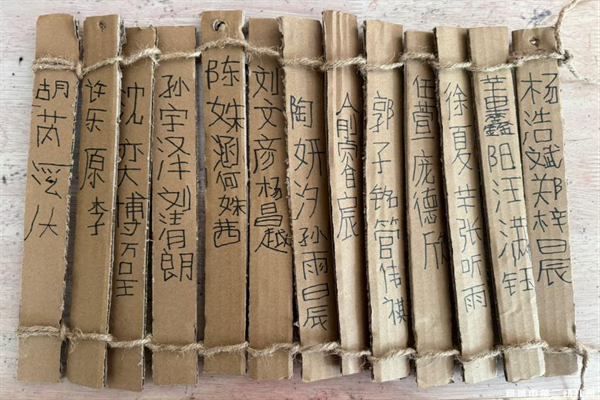 杨浩斌郑梓晨
董鑫阳汪满钰
徐夏芊张听雨
任萱庞德欣
郭子铭管伟祺
俞宸
陶妍汐孙雨晨
刘文彦杨昌越
陈姝涵何姝茜
孙宇刘清朗
沈奕博
许乐原李
胡芮